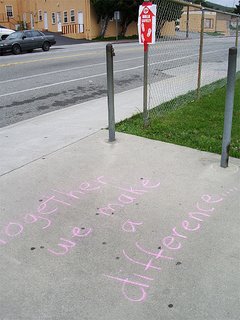 together
we make
a
difference....